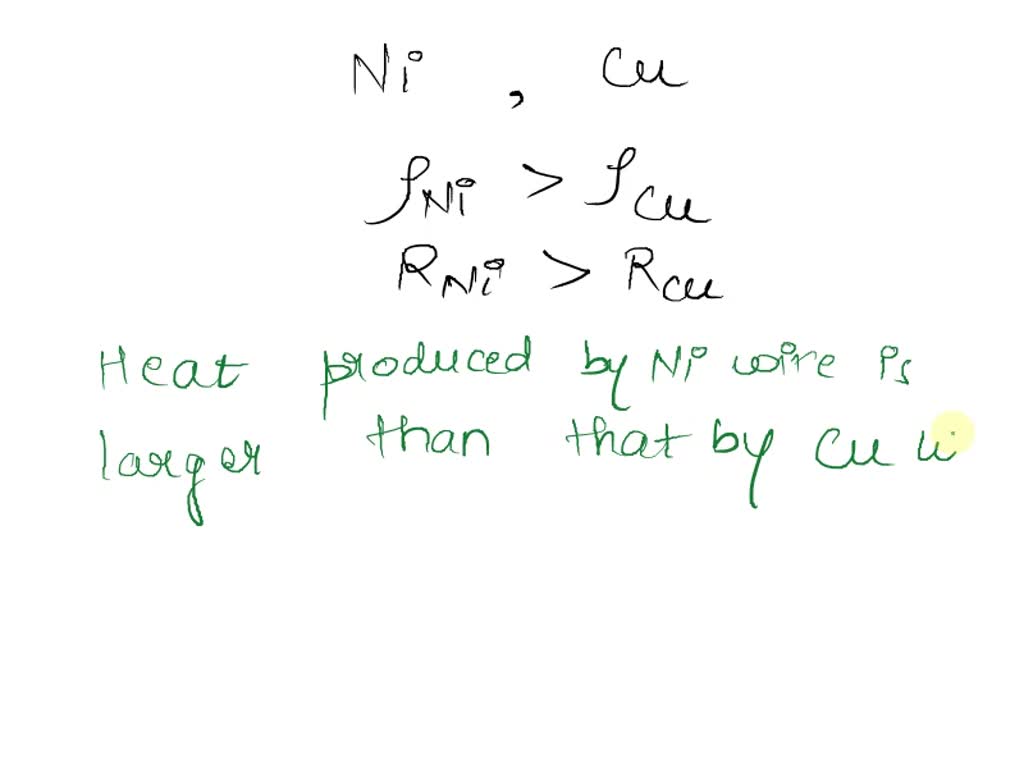 Ni , Cu
ρNi > ρCu
RNi > RCu
Heat produced by Ni wire is
larger than that by Cu